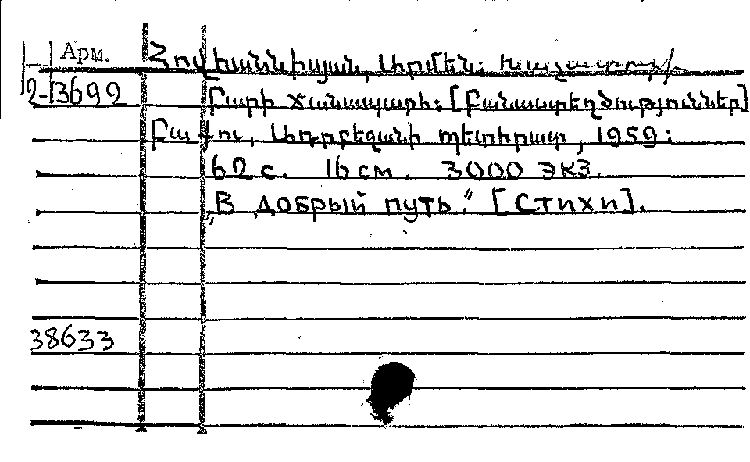 Арм. Հովհաննիսյան, Արմեն Խաչատուրի
2-13692 Բարի ճանապարհ: [Բանաստեղծություններ]
Բաքու, Ադրբեջանի պետհրատ, 1959:
62 с. 16 см. 3000 экз.
„В добрый путь." [Стихи].
38633